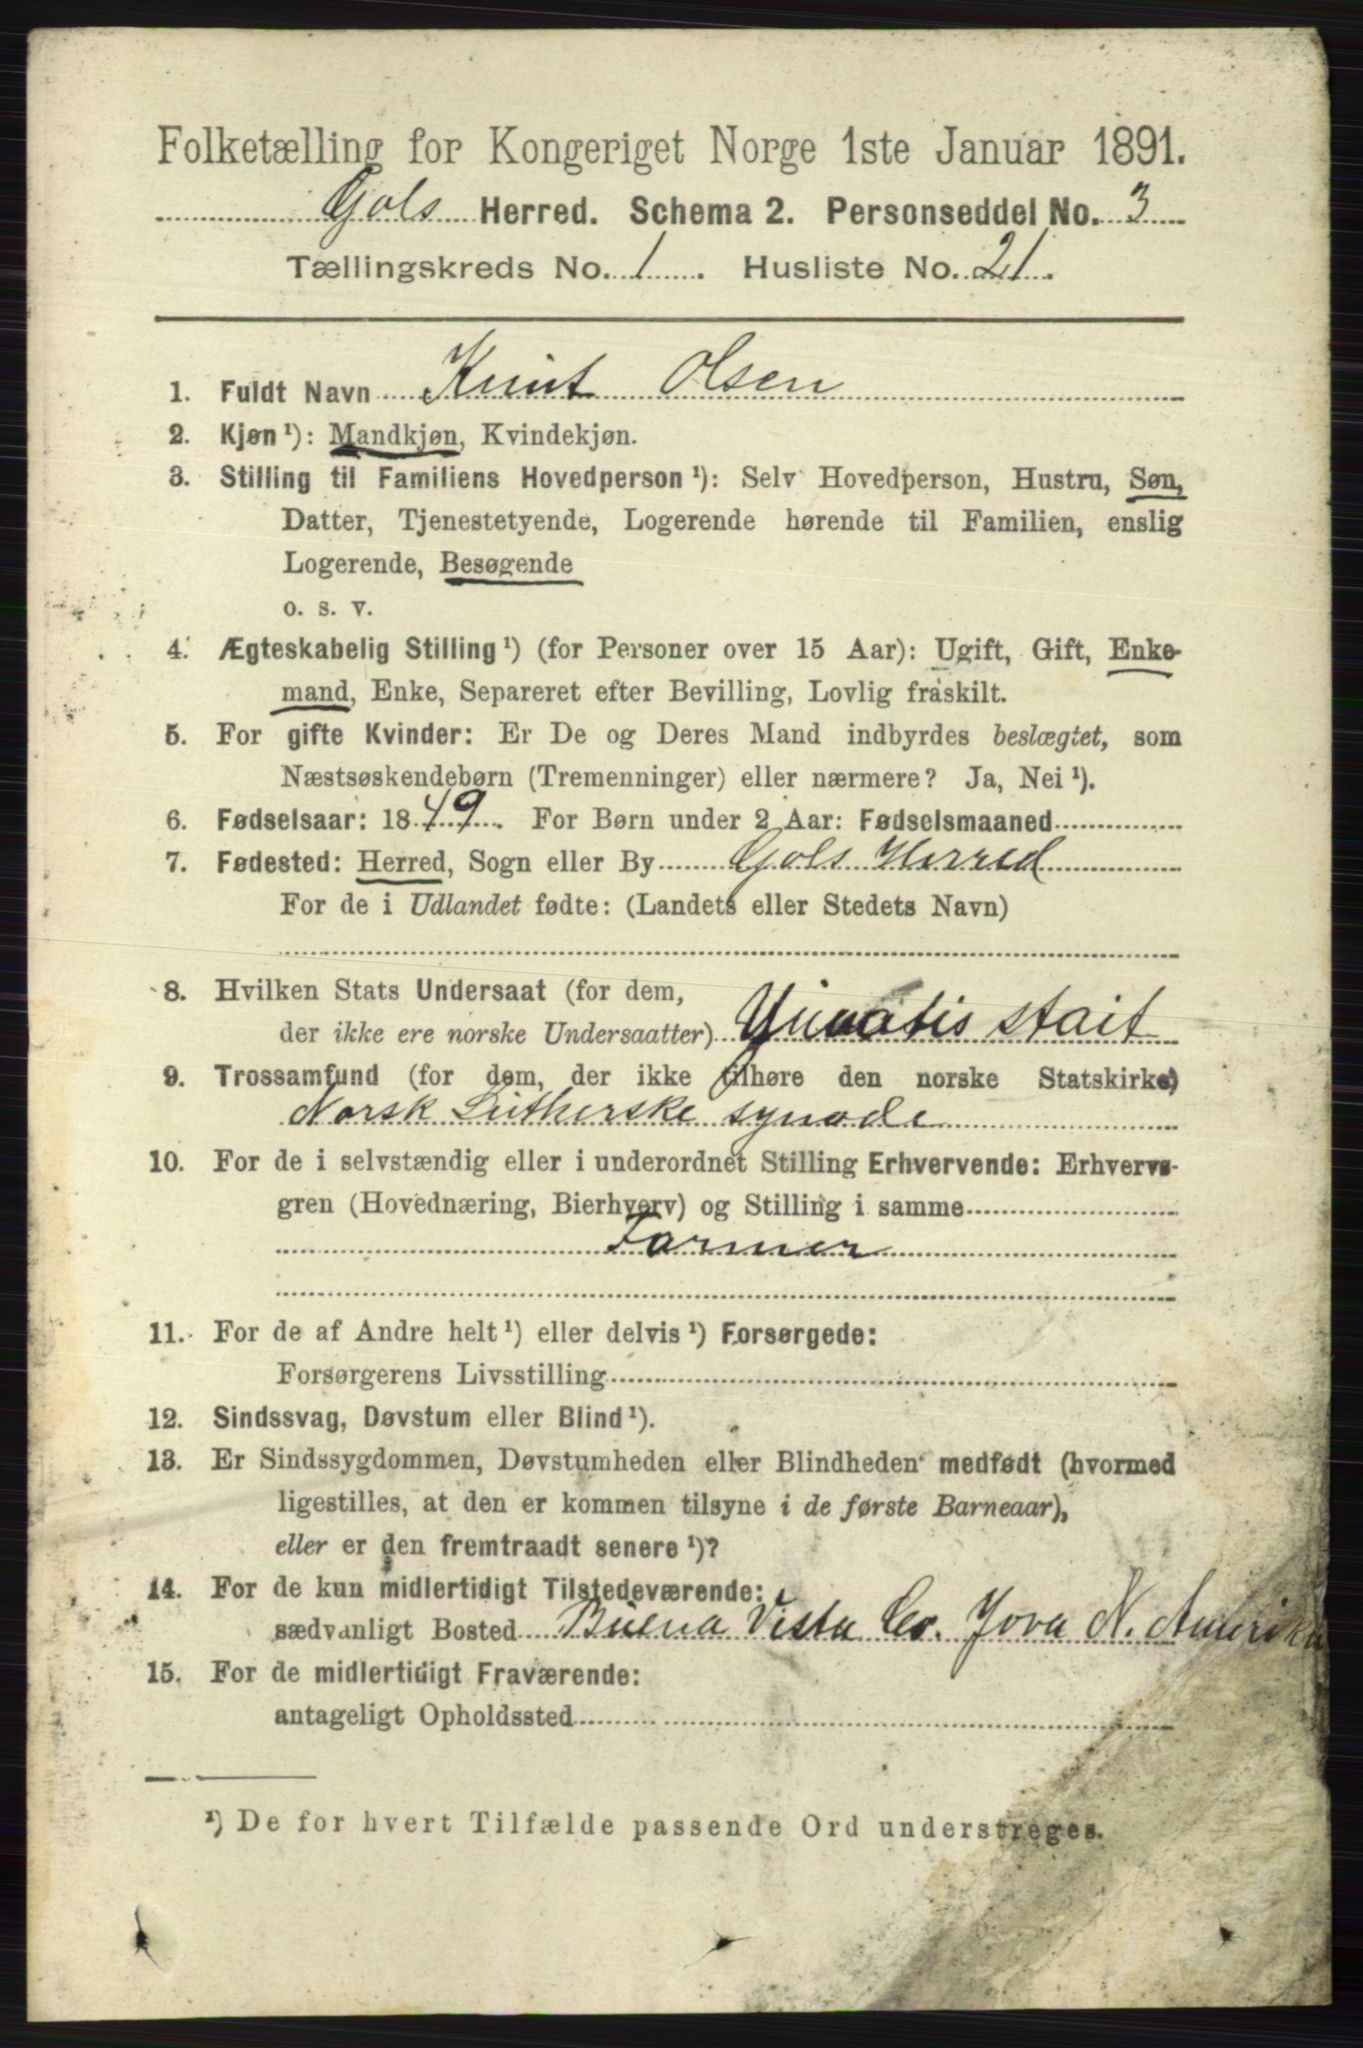 Folketælling for Kongeriget Norge 1ste Januar 1891.
Gols Herred. Schema 2. Personseddel No. 3
Tællingskreds No. 1. Husliste No. 21.
1. Fuldt Navn Knut Olsen
2. Kjøn ¹): Mandkjøn, Kvindekjøn.
3. Stilling til Familiens Hovedperson ¹): Selv Hovedperson, Hustru, Søn,
Datter, Tjenestetyende, Logerende hørende til Familien, enslig
Logerende, Besøgende
o. s. v.
4. Ægteskabelig Stilling ¹) (for Personer over 15 Aar): Ugift, Gift, Enke-
mand, Enke, Separeret efter Bevilling, Lovlig fraskilt.
5. For gifte Kvinder: Er De og Deres Mand indbyrdes beslægtet, som
Næstsøskendebørn (Tremenninger) eller nærmere? Ja, Nei ¹).
6. Fødselsaar: 1849. For Børn under 2 Aar: Fødselsmaaned
7. Fødested: Herred, Sogn eller By Gols Herred
For de i Udlandet fødte: (Landets eller Stedets Navn)
8. Hvilken Stats Undersaat (for dem,
der ikke ere norske Undersaatter) stait
9. Trossamfund (for dem, der ikke tilhøre den norske Statskirke)
Norsk Lutherske synode
10. For de i selvstændig eller i underordnet Stilling Erhvervende: Erhvervs-
gren (Hovednæring, Bierhverv) og Stilling i samme
Farmer
11. For de af Andre helt ¹) eller delvis ¹) Forsørgede:
Forsørgerens Livsstilling
12. Sindssvag, Døvstum eller Blind ¹).
13. Er Sindssygdommen, Døvstumheden eller Blindheden medfødt (hvormed
ligestilles, at den er kommen tilsyne i de første Barneaar),
eller er den fremtraadt senere ¹)?
14. For de kun midlertidigt Tilstedeværende:
sædvanligt Bosted Buena Vista Co. Jova N. Amerika
15. For de midlertidigt Fraværende:
antageligt Opholdssted
¹) De for hvert Tilfælde passende Ord understreges.